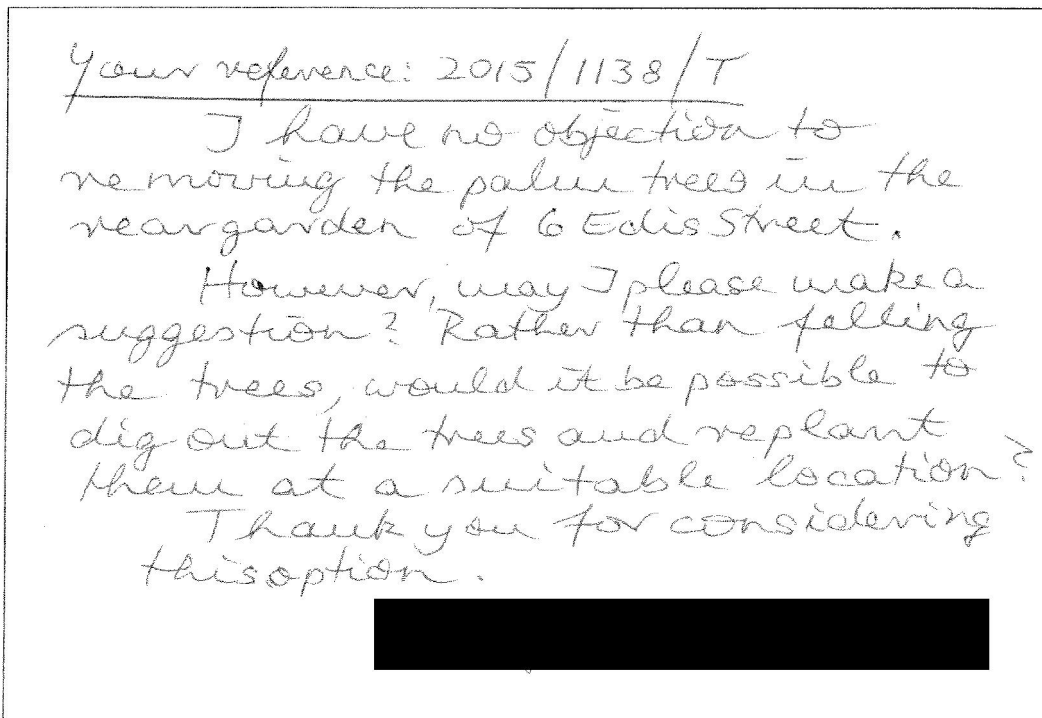 Your reference: 2015/1138/T
I have no objection to
removing the palm trees in the
rear garden of 6 Edis Street.
However, may I please make a
suggestion? Rather than felling
the trees, would it be possible to
dig out the trees and replant
them at a suitable location?
Thank you for considering
this option.